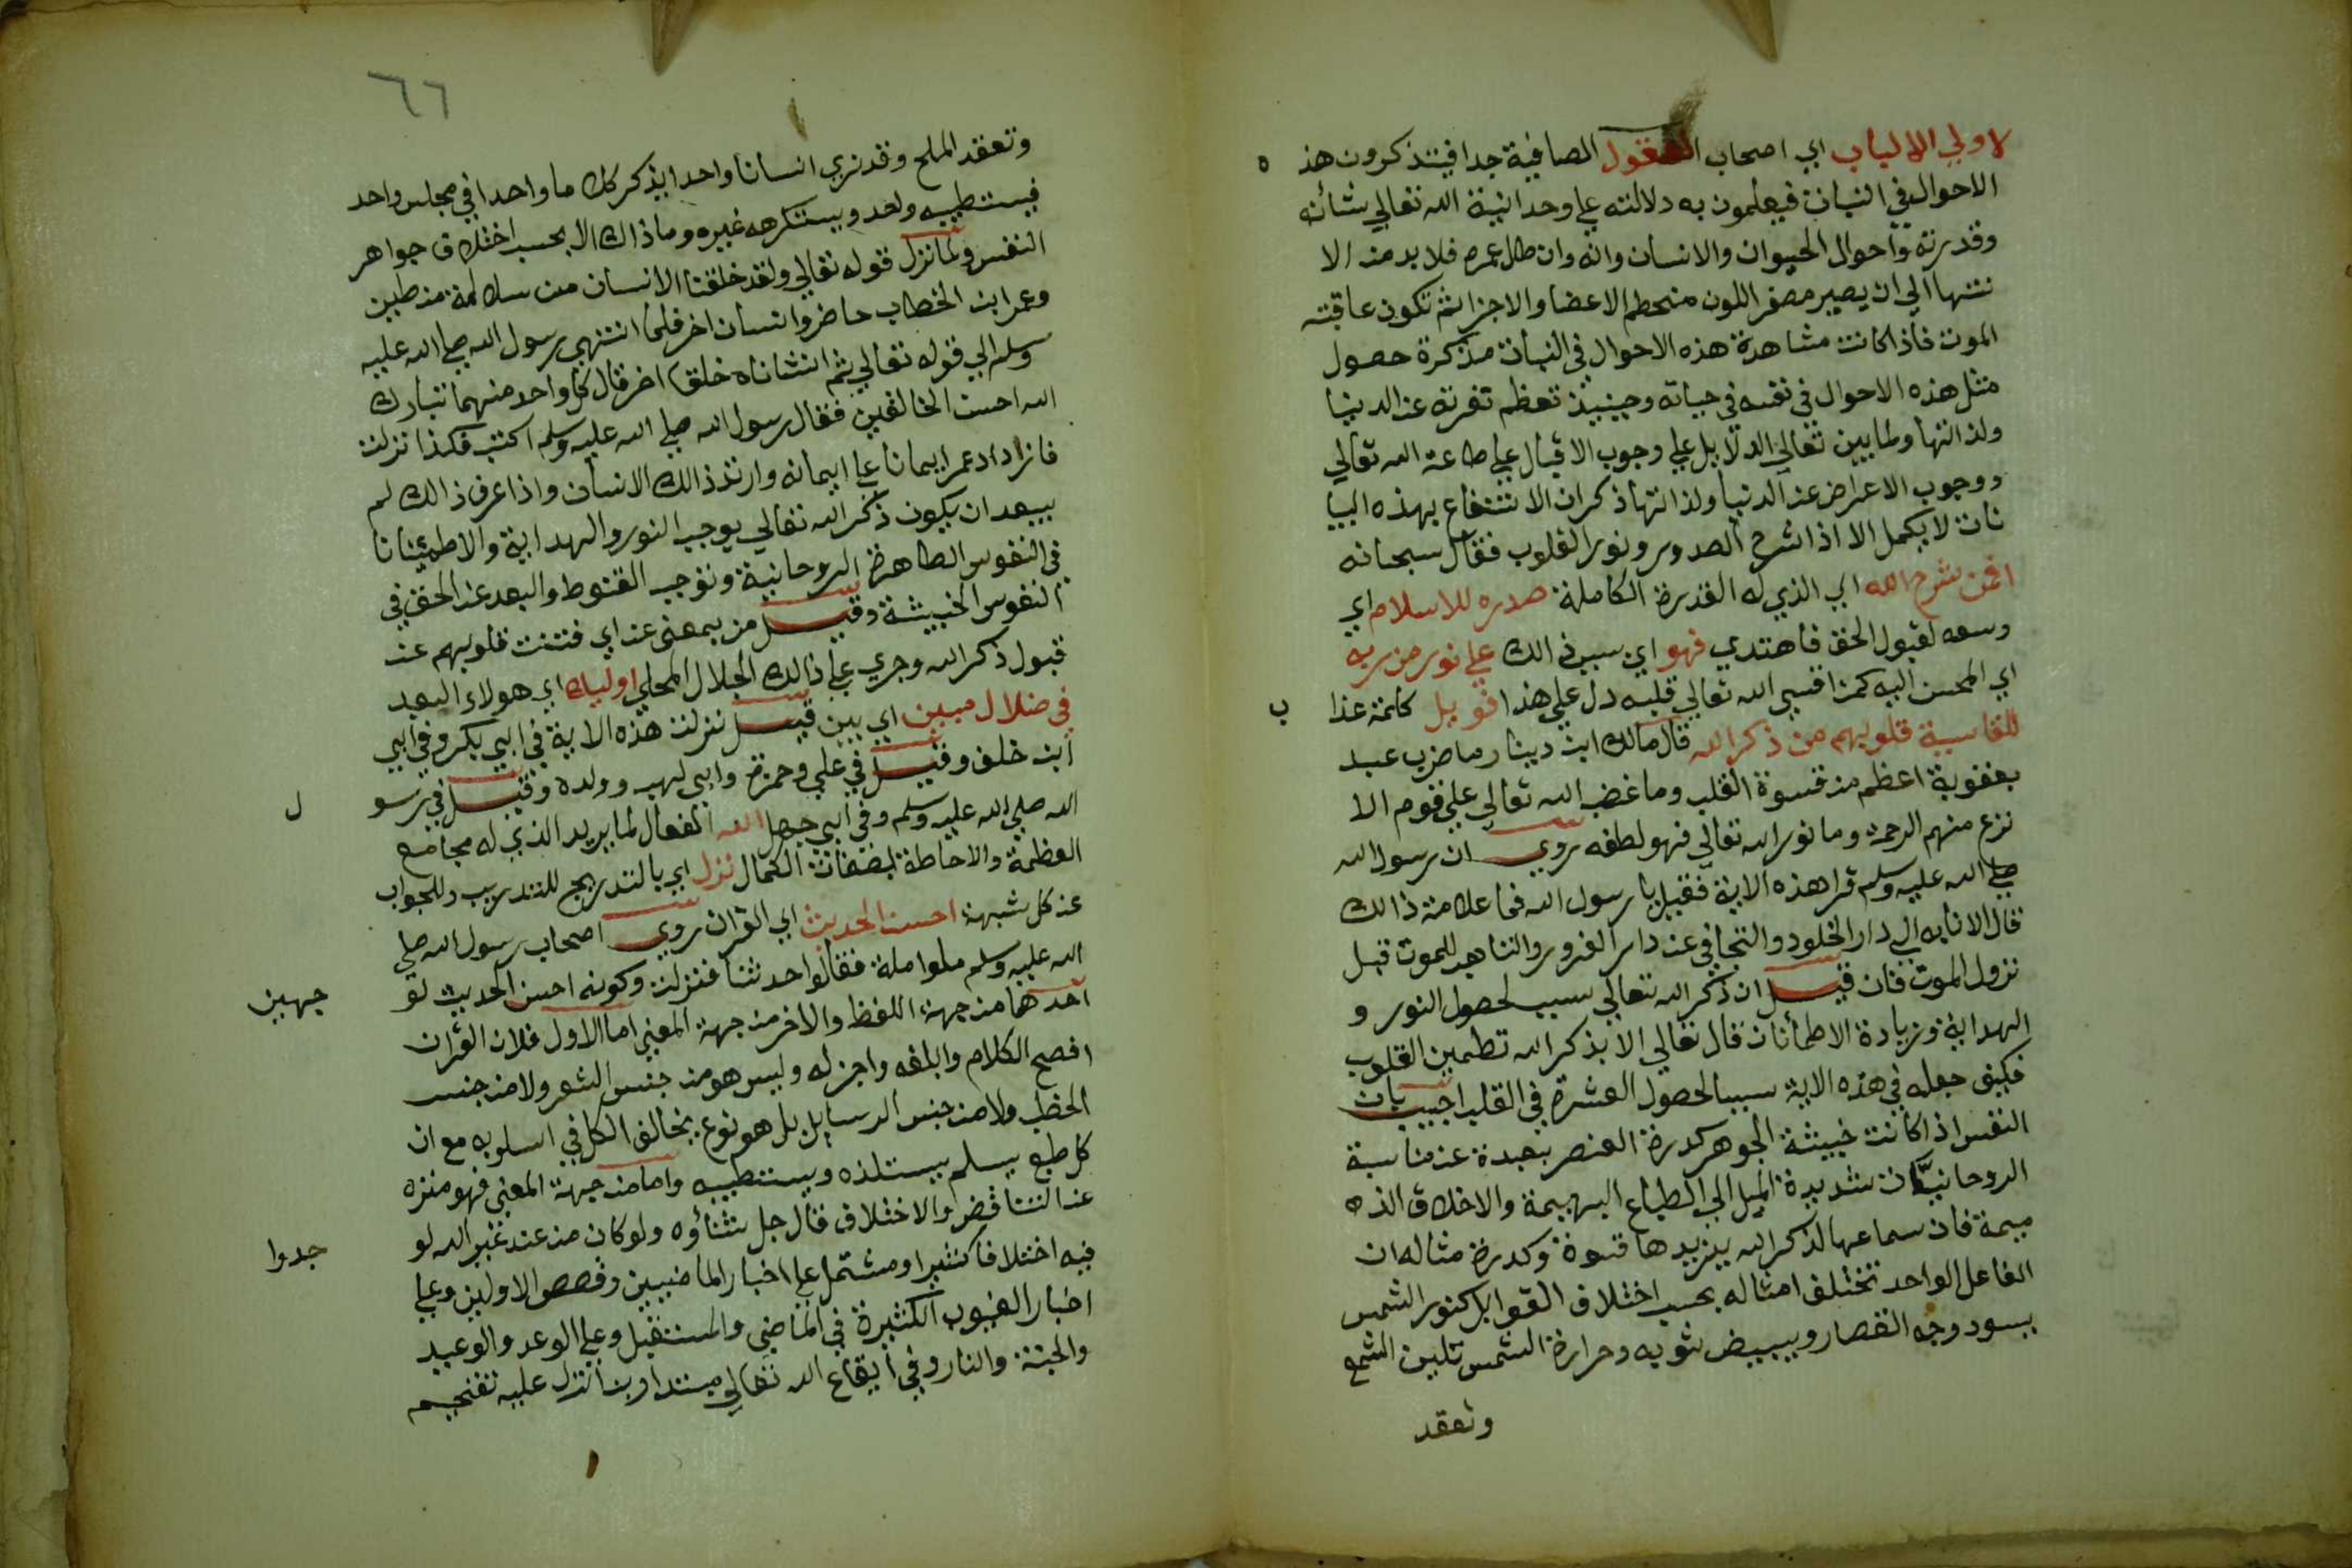 لاولي الالباب اي اصحاب العقول الصافية جدا فيتذكرون هذ ه
الاحوال في النبات فيعلمون به دلالته علي وحدانية الله تعالي شأنه
وقدرته واحوال الحيوان والانسان وانه وان طال عمره فلا بد من الا
نتها الي ان يصير مصفر اللون منحطم الاعضا والاجزا ثم تكون عاقبته
الموت فاذا كانت مشاهدة هذه الاحوال في النبات مذكرة حصول
مثل هذه الاحوال في نفسه في حياته وحينيذ تعظم نفرته عن الدنيا
ولذاتها ولما بين تعالي الدلايل علي وجوب الاقبال علي طاعة الله تعالي
ووجوب الاعراض عن الدنيا ولذاتها ذكر ان الانتفاع بهذه البيا
نات لا يكمل الا اذا شرح الصدور ونور القلوب فقال سبحانه
افمن شرح الله اي الذي له القدرة الكاملة صدره للاسلام اي
وسعه لقبول الحق فاهتدي فهو اي بسبب ذالك علي نور من ربه
اي المحسن اليه كمن اقسي الله تعالي قلبه دل علي هذا فويل كلمة عذا ب
للقاسية قلوبهم من ذكر الله قال مالك ابن دينار ما ضرب عبد
بعقوبة اعظم من قسوة القلب وما غضب الله تعالي علي قوم الا
نزع منهم الرحمة وما نور الله تعالي فهو لطفه روي ان رسول الله
صلي الله عليه وسلم قرا هذه الاية فقيل يا رسول الله فما علامة ذالك
قال الانابه الي دار الخلود والتجافي عن دار الغرور والتاهب للموت قبل
نزول الموت فان قيل ان ذكر الله تعالي سبب لحصول النور و
الهداية وزيادة الاطمأنان قال تعالي الا بذكر الله تطمين القلوب
فكيف جعله في هذه الاية سببا لحصول القسوة في القلب اجيب بان
النفس اذا كانت خبيثة الجوهر كدرة العنصر بعيدة عن مناسبة
الروحانيات شديدة الميل الي الطباع البهيمة والاخلاق الذ
ميمة فان سماعها لذكر الله يزيدها قسوة وكدرة مثاله ان
الفاعل الواحد تختلف امثاله بحسب اختلاف القوابل كنور الشمس
يسود وجه القصار ويبيض ثوبه وحرارة الشمس تلين الشمع
وتعقد
٦٦
وتعقد الملح وقد نري انسانا واحدا يذكر كلاما واحدا في مجلس واحد
فيستطيبه واحد ويستكرهه غيره وما ذاك الا بحسب اختلاف جواهر
النفس ولما نزل قوله تعالي ولقد خلقنا الانسان من سلالة من طين
وعمر ابن الخطاب حاضر وانسان اخر فلما انتهي رسول الله صلي الله عليه
وسلم الي قوله تعالي ثم انشاناه خلقا اخر قال كل واحد منهما تبارك
الله احسن الخالقين فقال رسول الله صلي الله عليه وسلم اكتب فكذا نزلت
فازداد عمر ايمانا علي ايمانه وارتد ذالك الانسان واذا عرف ذالك لم
يبعد ان يكون ذكر الله تعالي يوجب النور والهداية والاطمئنانا
في النفوس الطاهرة الروحانية وتوجب القنوط والبعد عن الحق في
النفوس الخبيثة وقيل من بمعني عن اي فتنت قلوبهم عن
قبول ذكر الله وجري علي ذالك الجلال المحلي اوليك اي هولاء البعد
في ضلال مبين اي بين قيل نزلت هذه الاية في ابي بكر وفي ابي
ابن خلف وقيل في علي وحمزة وابي لهب وولده وقيل في رسو ل
الله صلي الله عليه وسلم وفي ابي جهل الله الفعال لما يريد الذي له مجامع
العظمة والاحاطة بصفات الكمال نزل اي بالتدريج للتدريب وللجواب
عن كل شبهة احسن الحديث اي القران روي اصحاب رسول الله صلي
الله عليه وسلم ملوا ملة فقالوا حدثنا فنزلت وكونه احسن الحديث لو جهين
احدهما من جهة اللفظ والاخر من جهة المعني اما الاول فلان القران
افصح الكلام وابلغه واجزله وليس هو من جنس الشعر ولا من جنس
الخطب ولا من جنس الرسايل بل هو نوع يخالف الكل في اسلوبه مع ان
كل طبع سليم يستلذه ويستطيبه واما من جهة المعني فهو منزه
عن التناقض والاختلاف قال جل شأؤه ولو كان من عند غير الله لو جدوا
فيه اختلافا كثيرا ومشتمل علي اخبار الماضيين وقصص الاولين وعلي
اخبار الغيوب الكثيرة في الماضي والمستقبل وعلي الوعد والوعيد
والجنة والنار وفي ايقاع الله تعالي مبتدا وبنا نزل عليه تفخيم